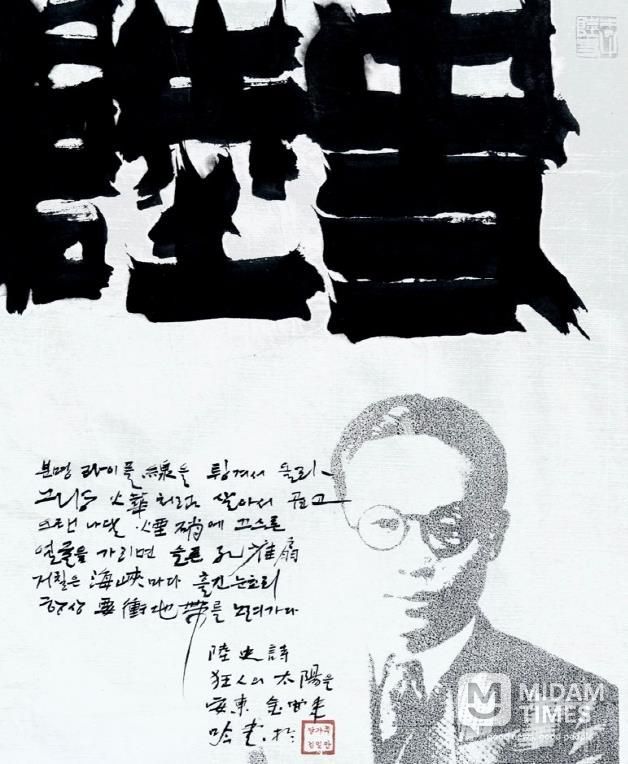 분명 라이플線을 튕겨서 올라
그냥 火華처럼 살아서 곱고
오랜 나달 煙硝에 끄스른
얼굴을 가리면 슬픈 孔雀扇
거칠은 海峽마다 흘긴 눈초리
항상 要衝地帶를 노려가다
陸史 詩
狂人의 太陽을
安東 金
MIDAM
TIMES
good news, good people